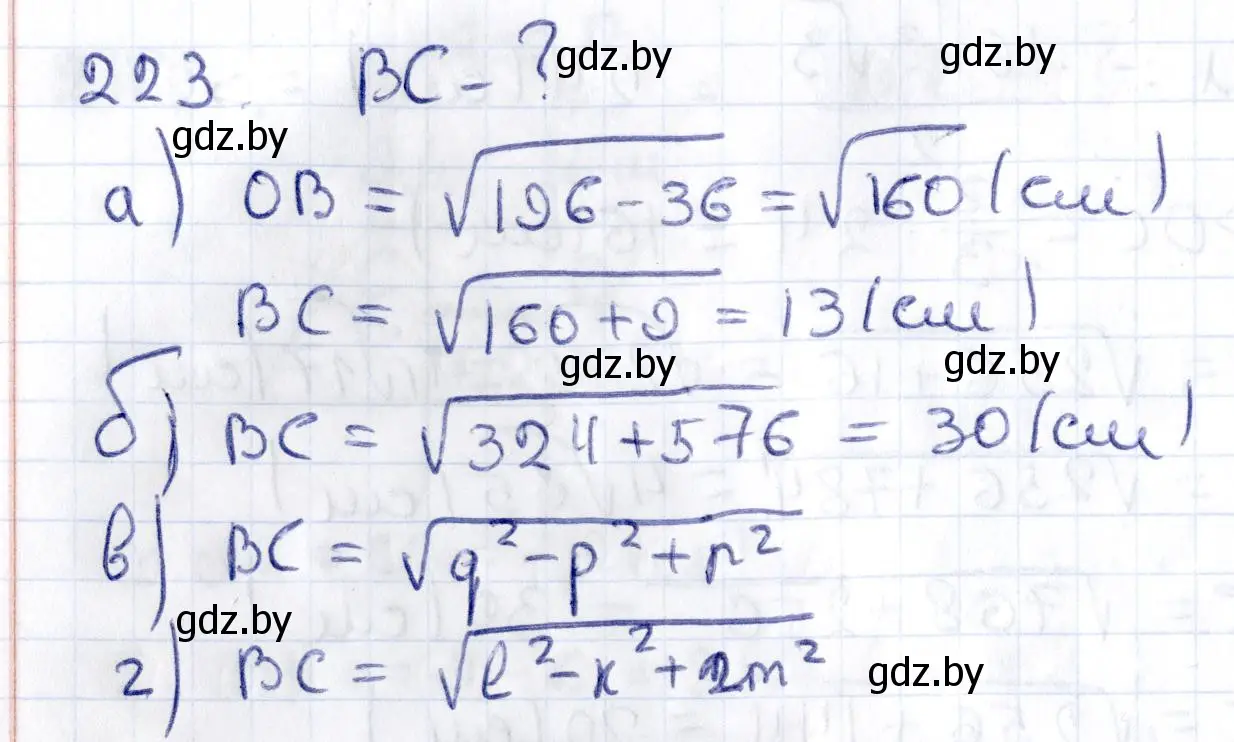 223. BC - ?
gdz.by gdz.by
gdz.by
а) OB = √196 - 36 = √160 (см)
BC = √160 + 9 = 13 (см)
gdz.by gdz.by
б) BC = √324 + 576 = 30 (см)
в) BC = √q² - p² + n²
gdz.by
г) BC = √l² - k² + 2m²
gdz.by